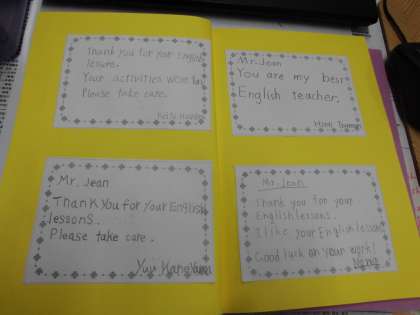 Thank you for your English
lessons.
Your activities were fun
Please take care.
Mr. Jean
You are my best
English teacher.
Mr. Jean
Thank you for your English
lessons.
Please take care.
Yuu
Mr. Jean
Thank you for your
English lessons.
I like your English lessons
Good luck on your work!